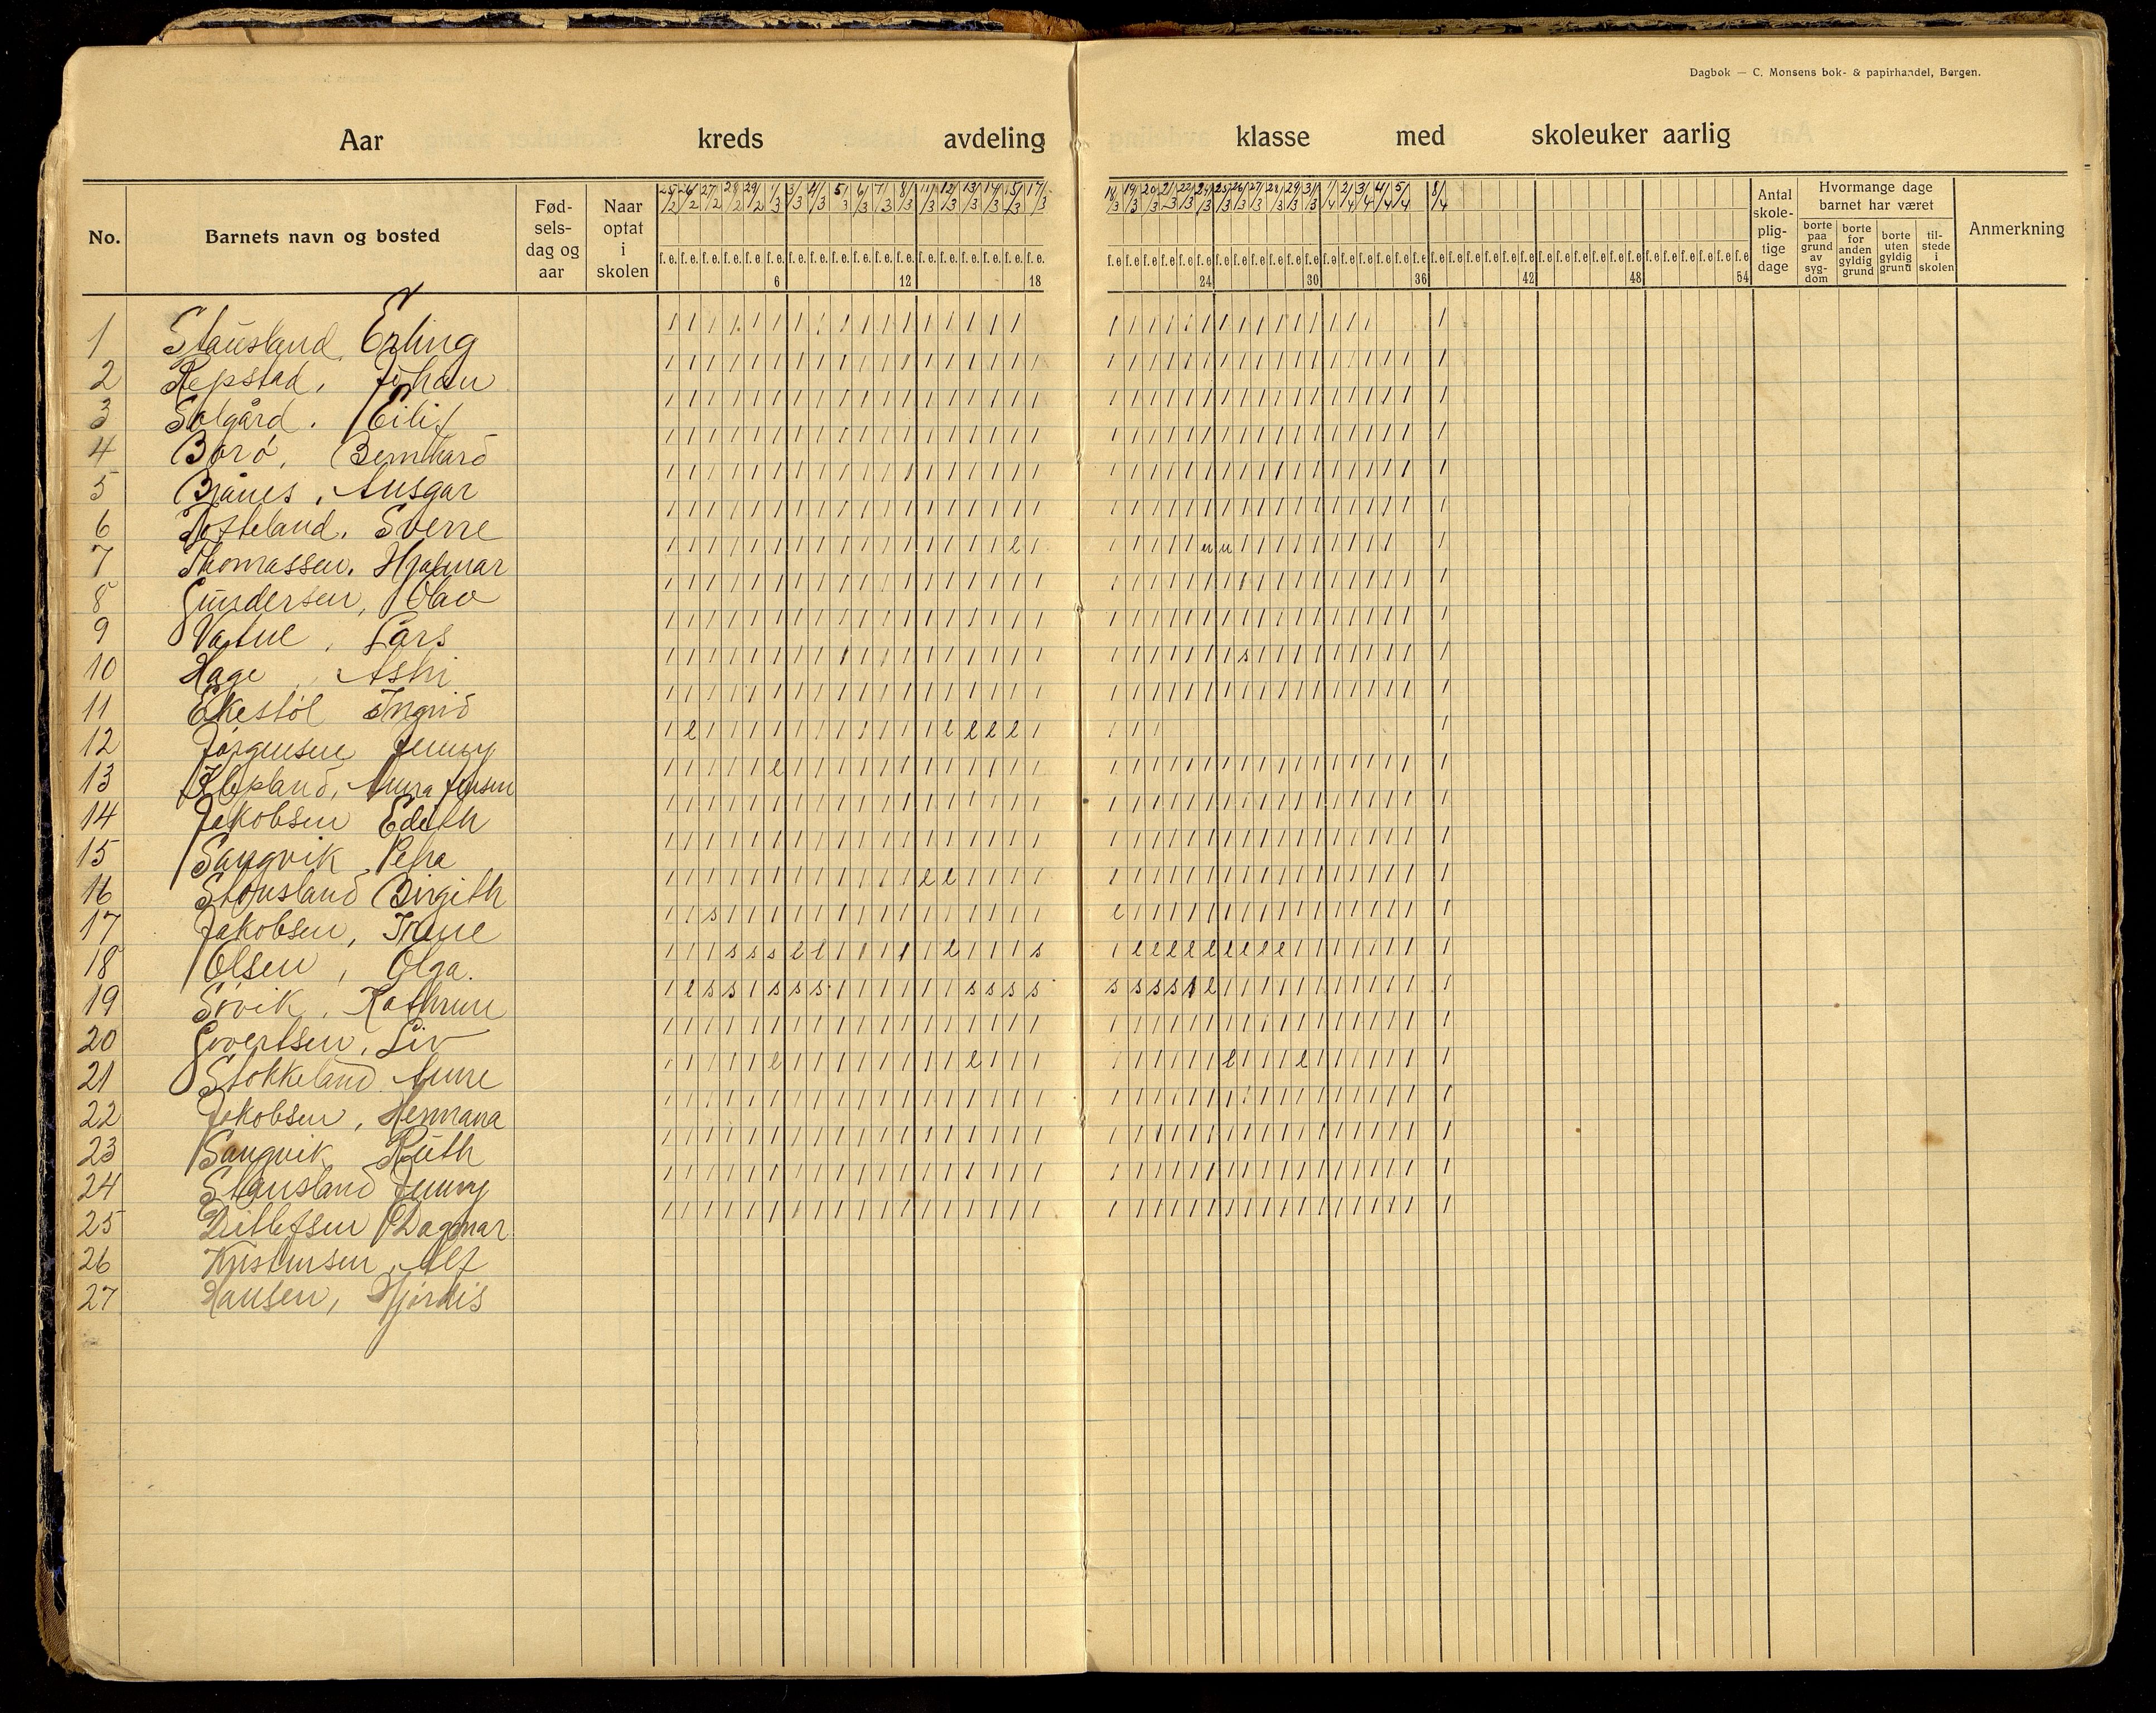 Dagbok — C. Monsens bok- & papirhandel, Bergen.
Aar kreds avdeling klasse med skoleuker aarlig
No. Barnets navn og bosted Fød-sels-dag og aar Naar optat i skolen 25/2 26/2 27/2 28/2 29/2 1/3 3/3 4/3 5/3 6/3 7/3 8/3 11/3 12/3 13/3 14/3 15/3 17/3 18/3 19/3 20/3 21/3 22/3 24/3 25/3 26/3 27/3 28/3 29/3 31/3 1/4 2/4 3/4 4/4 5/4 8/4 Antal skole-plig-tige dage Hvormange dage barnet har været Anmerkning
borte paa grund av syg-dom borte for anden gyldig grund borte uten gyldig grund til-stede i skolen
6 12 18 24 30 36 42 48 54
1 Stausland, Erling
2 Repstad, Johan
3 Solgård. Eilif
4 Borø, Bernhard
5 Brånes, Ansgar
6 Tofteland. Sverre
7 Thomassen. Hjalmar
8 Gundersen, Olav
9 Vatne, Lars
10 Hage, Astri
11 Ekestøl Ingrid
12 Jørgensen Jenny
13 Klepland, Anna Jensen
14 Jakobsen Edith
15 Sangvik Petra
16 Stausland Birgith
17 Jakobsen, Irene
18 Olsen, Olga.
19 Søvik, Kathrine
20 Govertsen, Liv
21 Stokkeland Anne
22 Jakobsen, Hermana
23 Sangvik Ruth
24 Stausland Jenny
25 Ditlefsen Dagmar
26 Kristensen, Alf
27 Hansen, Hjørdis